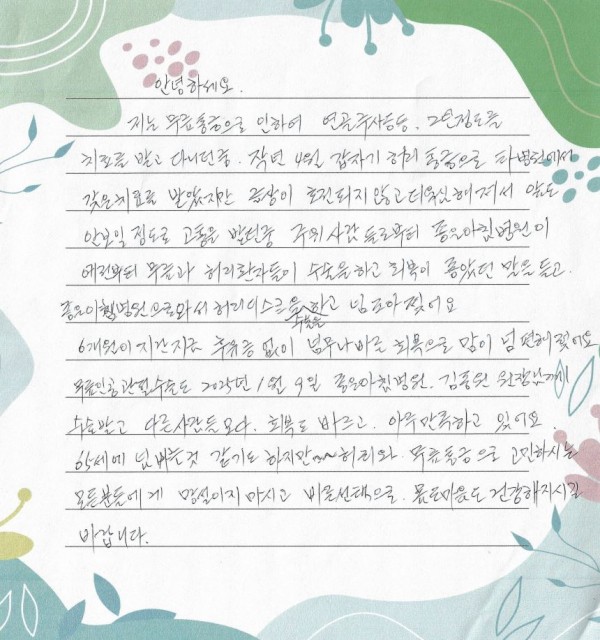 안녕하세요.
저는 무릎통증으로 인하여 연골주사등등, 2년정도를
치료를 받고 다니던중. 작년 4월 갑자기 허리 통증으로 타병원에서
갖은치료를 받았지만 증상이 호전되지 않고 더욱심해져서 앞도
안보일 정도로 고통을 받던중 주위 사람들로부터 좋은아침병원이
예전부터 무릎과 허리환자들이 수술을하고 회복이 좋았던 말을 듣고.
좋은아침병원 와서 허리디스크 수술을 하고 넘 좋아졌어요
6개월이 지난 지금 후유증 없이 너무나 빠른 회복으로 많이 넘 편해졌어요
무릎인공관절수술도 2025년 1월 9일 좋은아침병원. 김원장님께
수술받고 다른사람들보다. 회복도 빠르고. 아주만족하고 있어요.
65세에 넘 빠른것 같기도 하지만~~ 허리와. 무릎통증으로 고민하시는
모든분들에게 망설이지마시고 바른선택으로. 몸도마음도 건강해지시길
바랍니다.